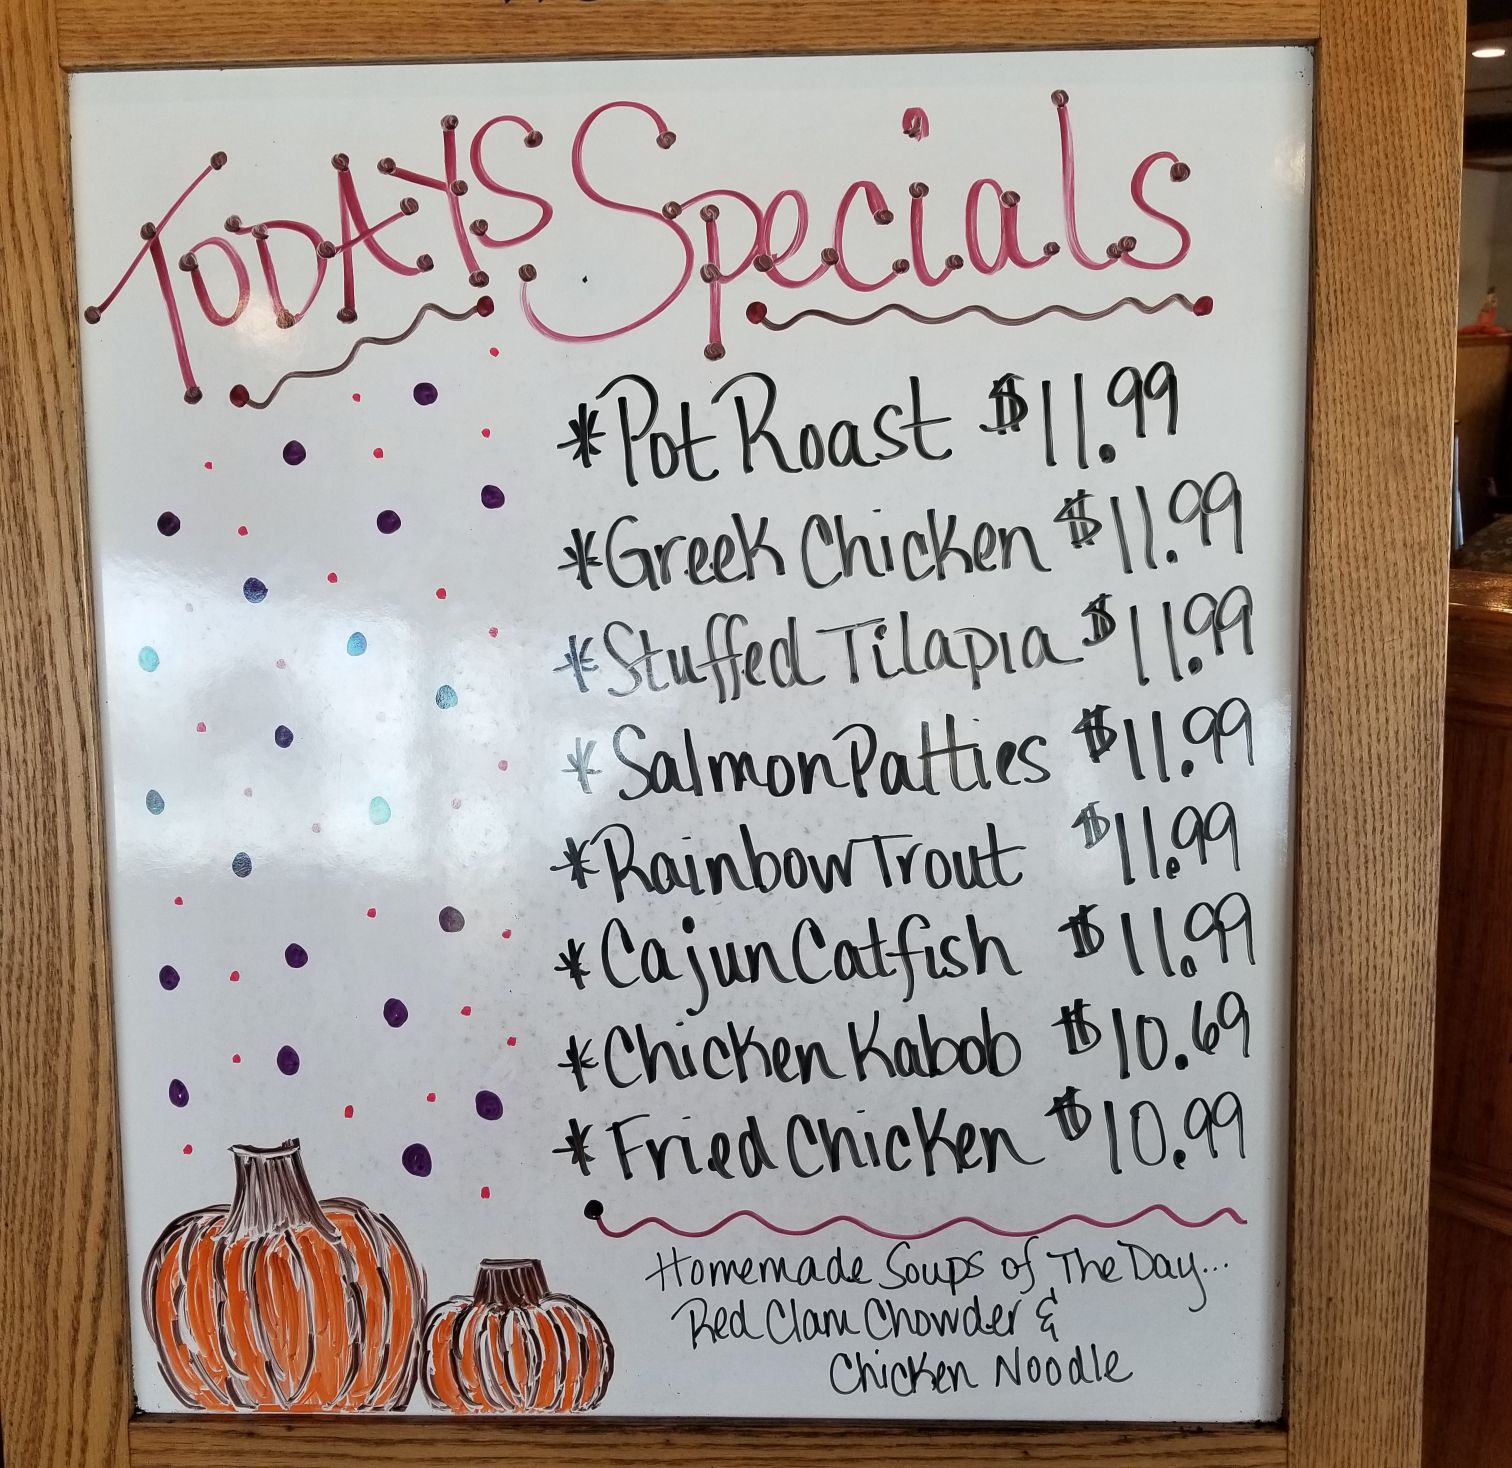 TODAYS Specials
*Pot Roast $11.99
*Greek Chicken $11.99
*Stuffed Tilapia $11.99
*Salmon Patties $11.99
*Rainbow Trout $11.99
*Cajun Catfish $11.99
*Chicken Kabob $10.69
*Fried Chicken $10.99
Homemade Soups of The Day...
Red Clam Chowder &
Chicken Noodle